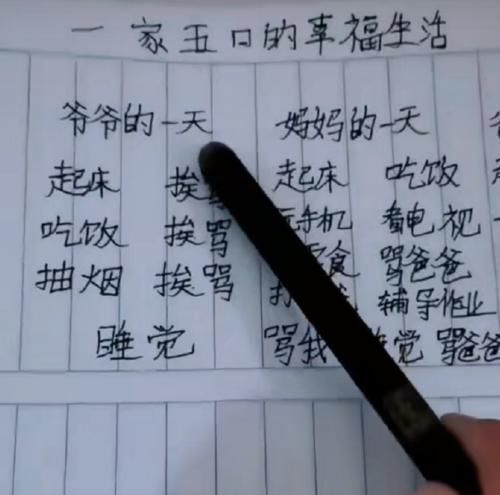 一家五口的幸福生活
爷爷的一天 妈妈的一天
起床 挨骂 起床 吃饭
吃饭 挨骂 手机 看电视
抽烟 挨骂 食 骂爸爸
辅导作业
睡觉 骂我 睡觉 骂爸爸